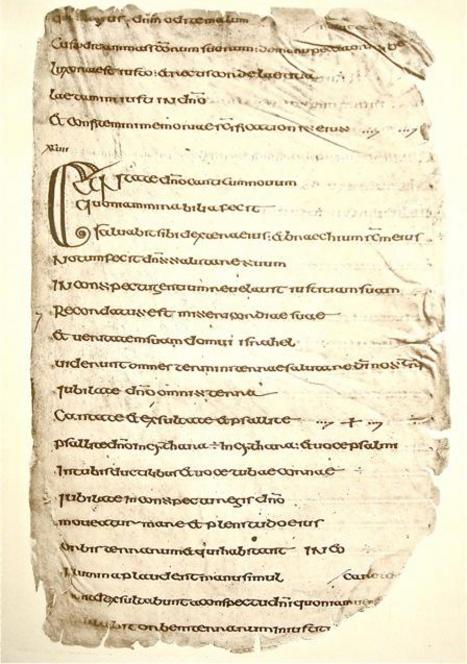 qui diligitis dnm odite malum
Custodit animas scorum suorum: de manu peccatoris
Lux orta est iusto: et rectis corde laetitia
laetamini iusti in dno
Et confitemini memoriae scificationis eius
Cantate dno canticum nouum
quoniam mirabilia fecit
saluabit sibi dextera eius: et bracchium scm eius
Notum fecit dns salutare suum
IN conspectu gentium reuelauit iustitiam suam
Recordatus est misericordiae suae
Et ueritatem suam domui israhel
uiderunt omnes termini terrae salutare di nostri
Iubilate dno omnis terra
Cantate et exsultate et psallite
psallite dno in cythara ÷ In cythara: et uoce psalmi
In tubis ductilibus et uoce tubae corneae
Iubilate in conspectu regis dno
moueatur mare et plenitudo eius
orbis terrarum et qui habitant IN eo
flumina plaudent manu simul
exsultabunt a conspectu dni quoniam
orbem terrarum in iusti